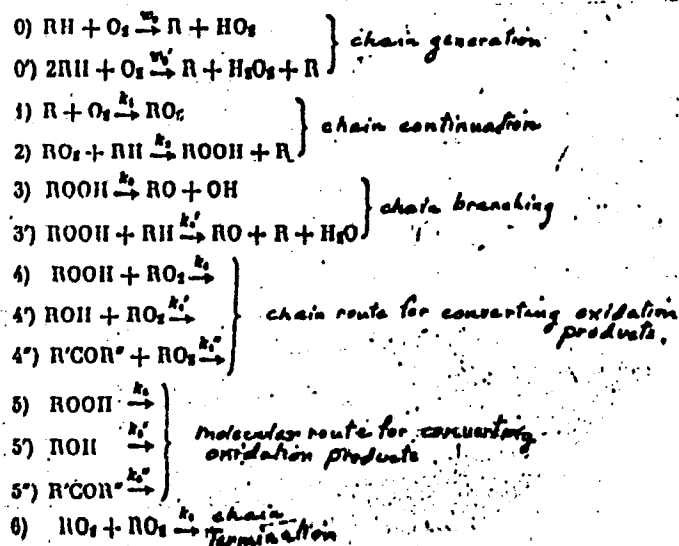 0) RH + O₂ →(w₀) R + HO₂
0') 2RH + O₂ →(w₀') R + H₂O₂ + R
chain generation
1) R + O₂ →(k₁) RO₂
2) RO₂ + RH →(k₂) ROOH + R
chain continuation
3) ROOH →(k₃) RO + OH
3') ROOH + RH →(k₃') RO + R + H₂O
chain branching
4) ROOH + RO₂ →(k₄)
4') ROH + RO₂ →(k₄')
4'') R'COR'' + RO₂ →(k₄'')
chain route for converting oxidation
products.
5) ROOH →(k₅)
5') ROH →(k₅')
5'') R'COR'' →(k₅'')
molecular route for converting
oxidation products
6) RO₂ + RO₂ →(k₆) chain
termination